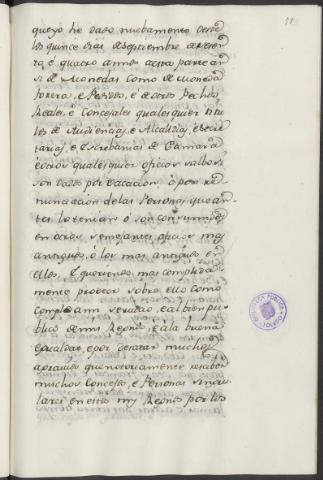 que yo he dado nuebamente desde
los quince dias de septiembre de seten
ta, e quatro annos acá, para tea
si de Monedas como de moneda
forera, e Pedidos, e de otros Pechos
Reales, e Concejales qualesquier titu
los de Audiencias, e Alcaldias, e Secre
tarias, e Escrebanias de Camara
e otros qualesquier oficios salbo si
son dados por bacacion, ó por re
nunciacion de las Personas, que an
tes los tenian, ó son consumidos
en otros semejantes oficios mas
antiguos, ó los mas antiguos en
ellos, E queriendo mas complida
mente probeer sobre ello como
comple a mi serbicio, e al bien pu
blico de mis Regnos, e a la buena
igualdad, e por quitar muchos
agrabios que notoriamente reciben
muchos Concejos, e Personas singu
lares en estos mis Regnos por los
BIBLIOTECA PUBLICA
TOLEDO